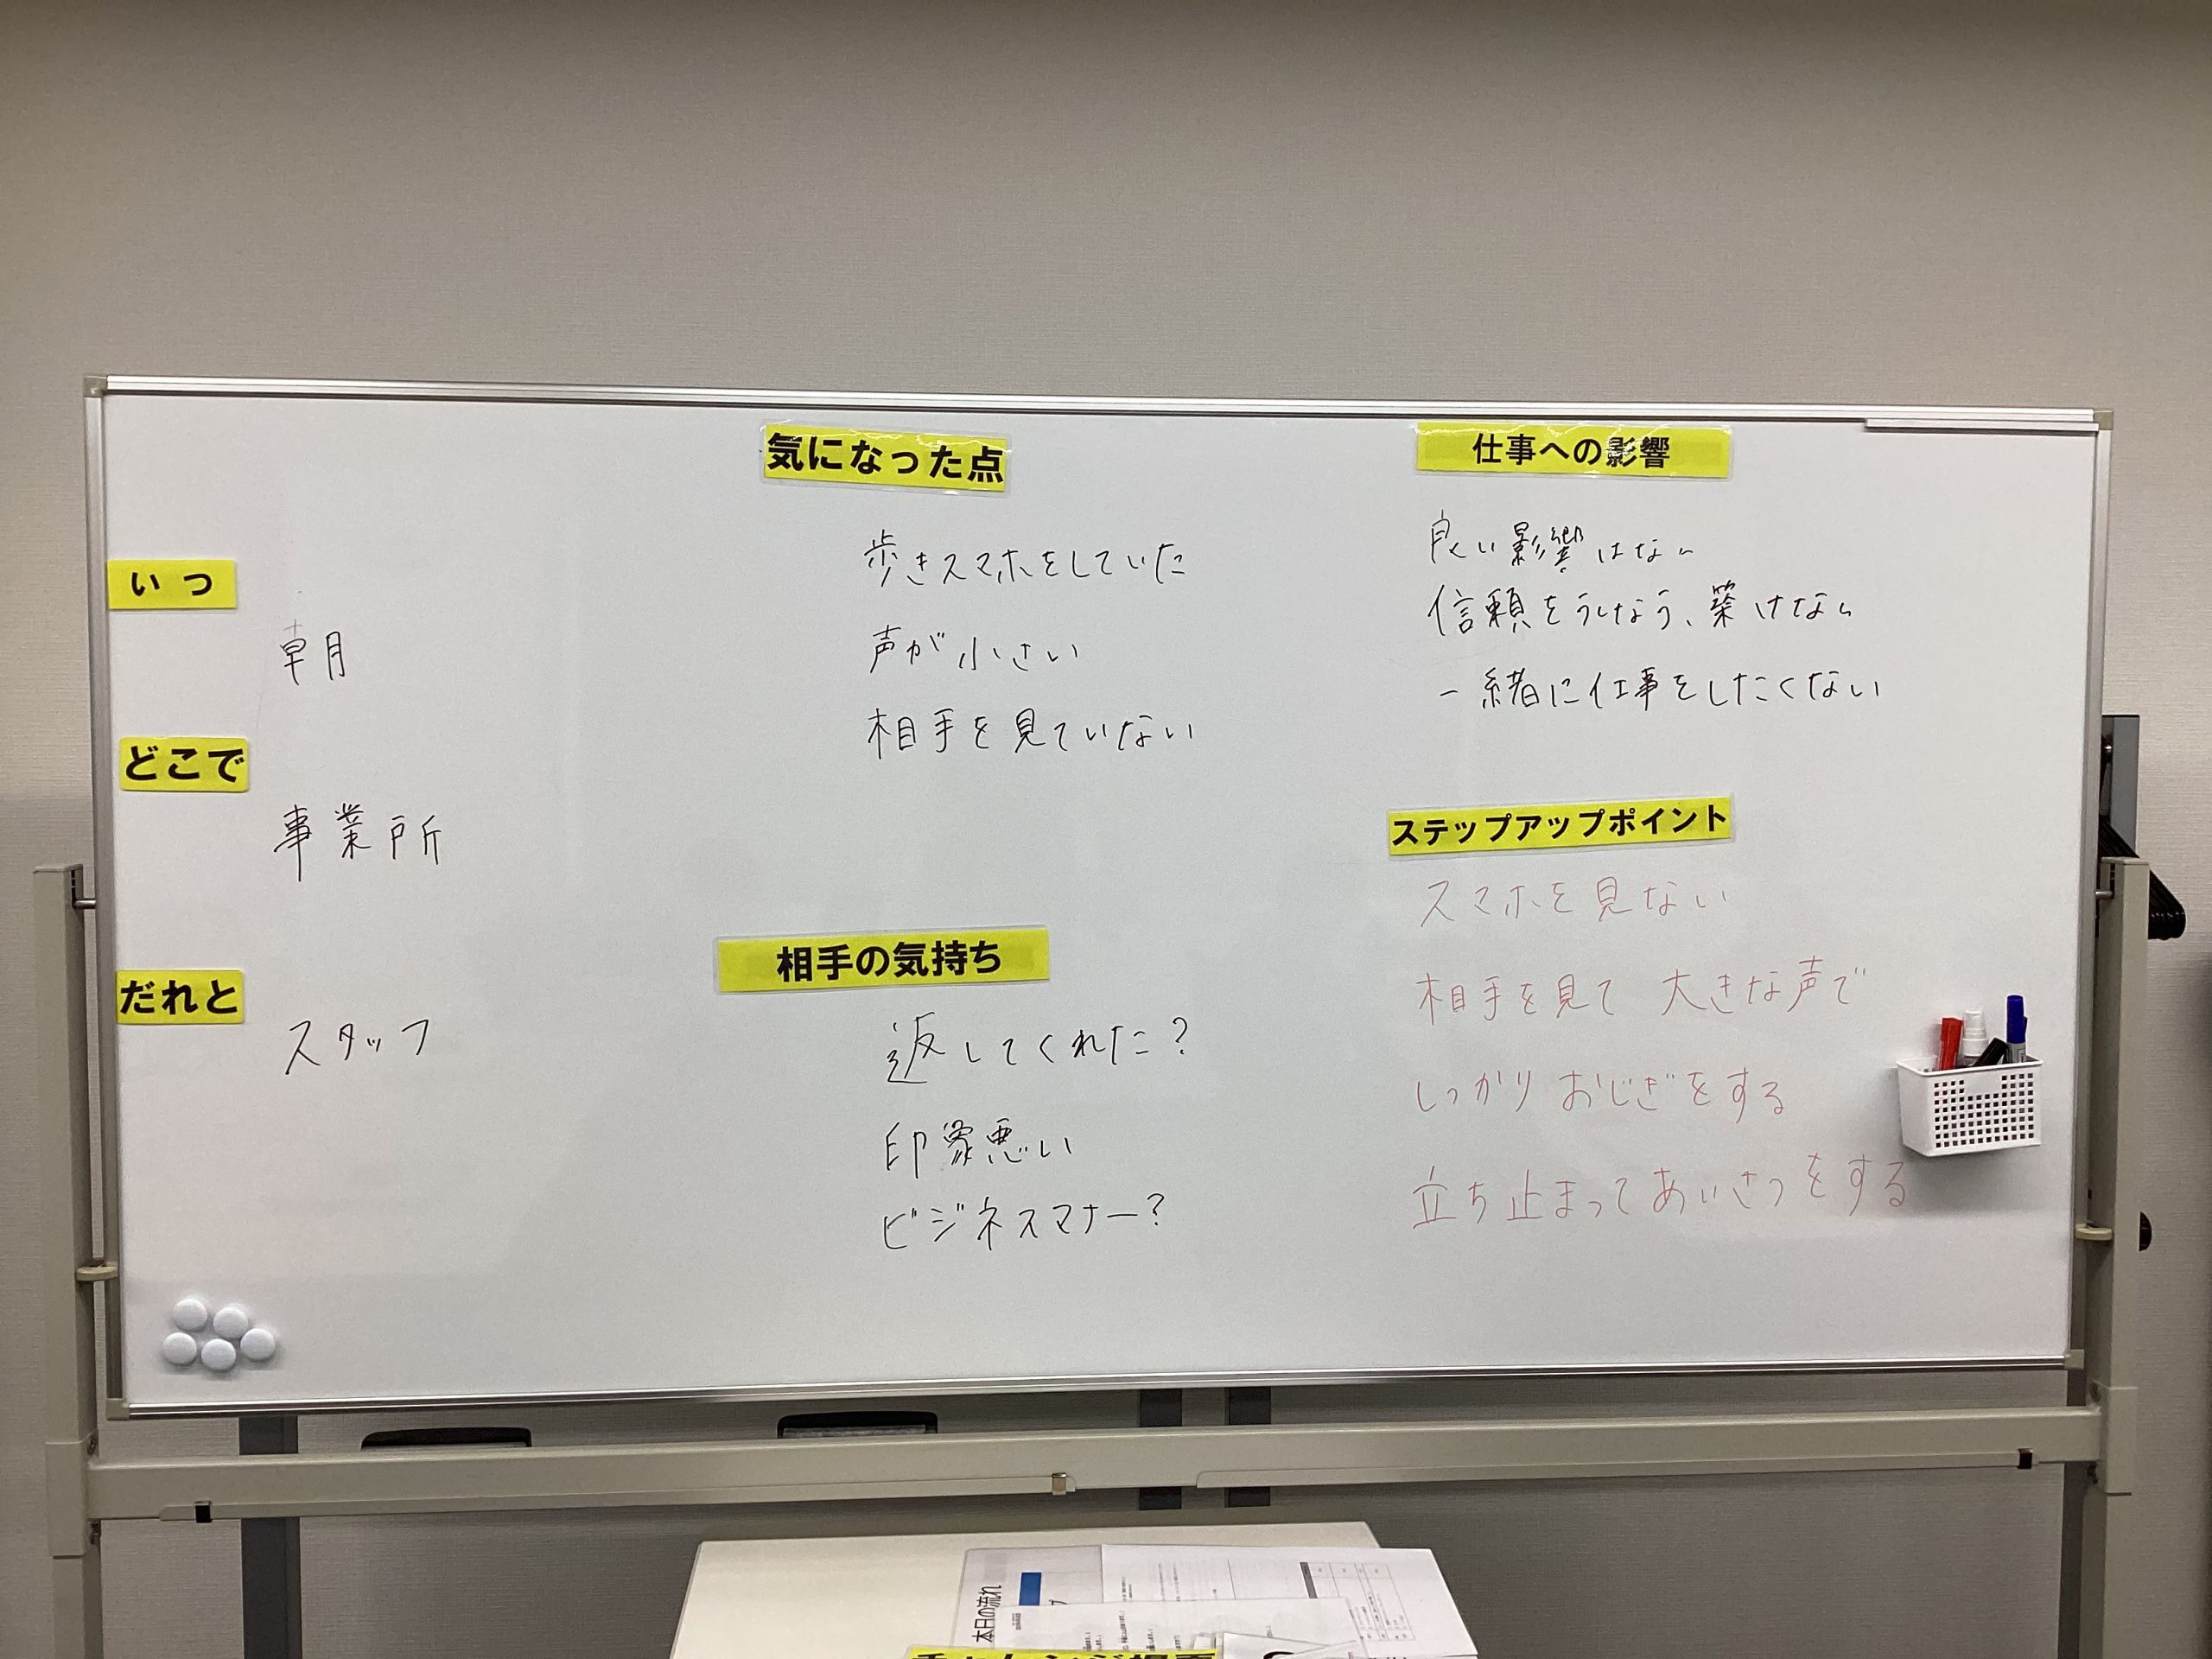 いつ
朝
どこで
事業所
だれと
スタッフ
気になった点
歩きスマホをしていた
声が小さい
相手を見ていない
相手の気持ち
返してくれた？
印象悪い
ビジネスマナー？
仕事への影響
良い影響はない
信頼をうしなう、築けない
一緒に仕事をしたくない
ステップアップポイント
スマホを見ない
相手を見て 大きな声で
しっかりおじぎをする
立ち止まってあいさつをする
本日の流れ